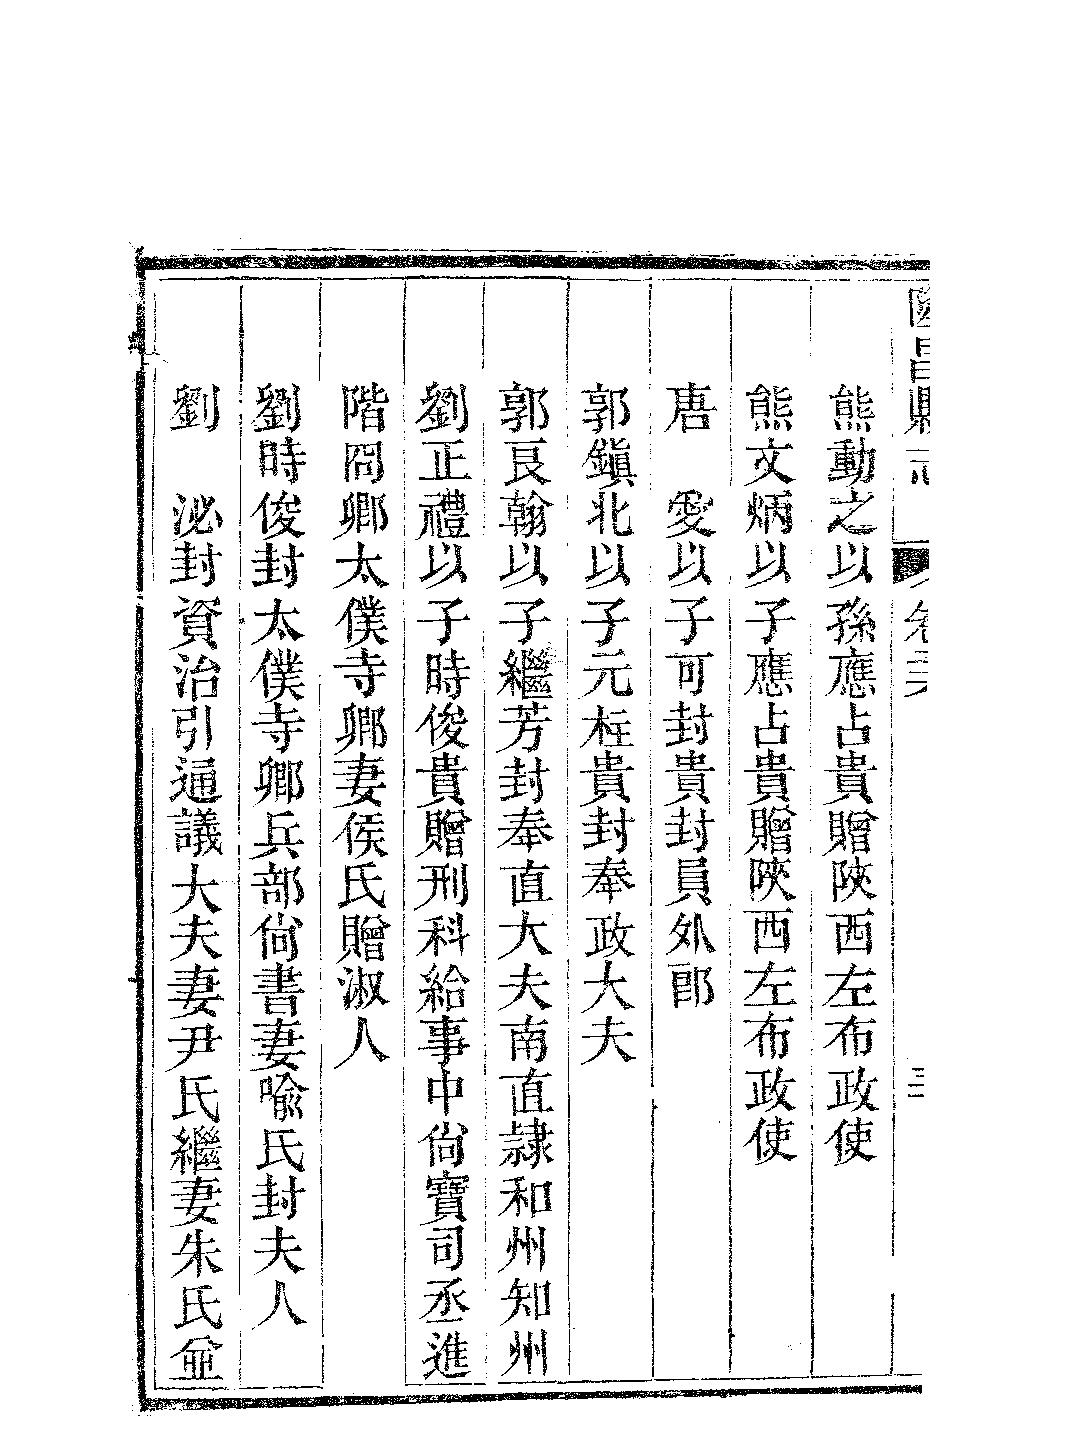 昌縣志 卷 三
熊動之以孫應占貴贈陝西左布政使
熊文炳以子應占貴贈陝西左布政使
唐 愛以子可封貴封員外郎
郭鎮北以子元柱貴封奉政大夫
郭良翰以子繼芳封奉直大夫南直隸和州知州
劉正禮以子時俊貴贈刑科給事中尚寶司丞進
階冏卿太僕寺卿妻侯氏贈淑人
劉時俊封太僕寺卿兵部尚書妻喻氏封夫人
劉 泌封資治引通議大夫妻尹氏繼妻朱氏並